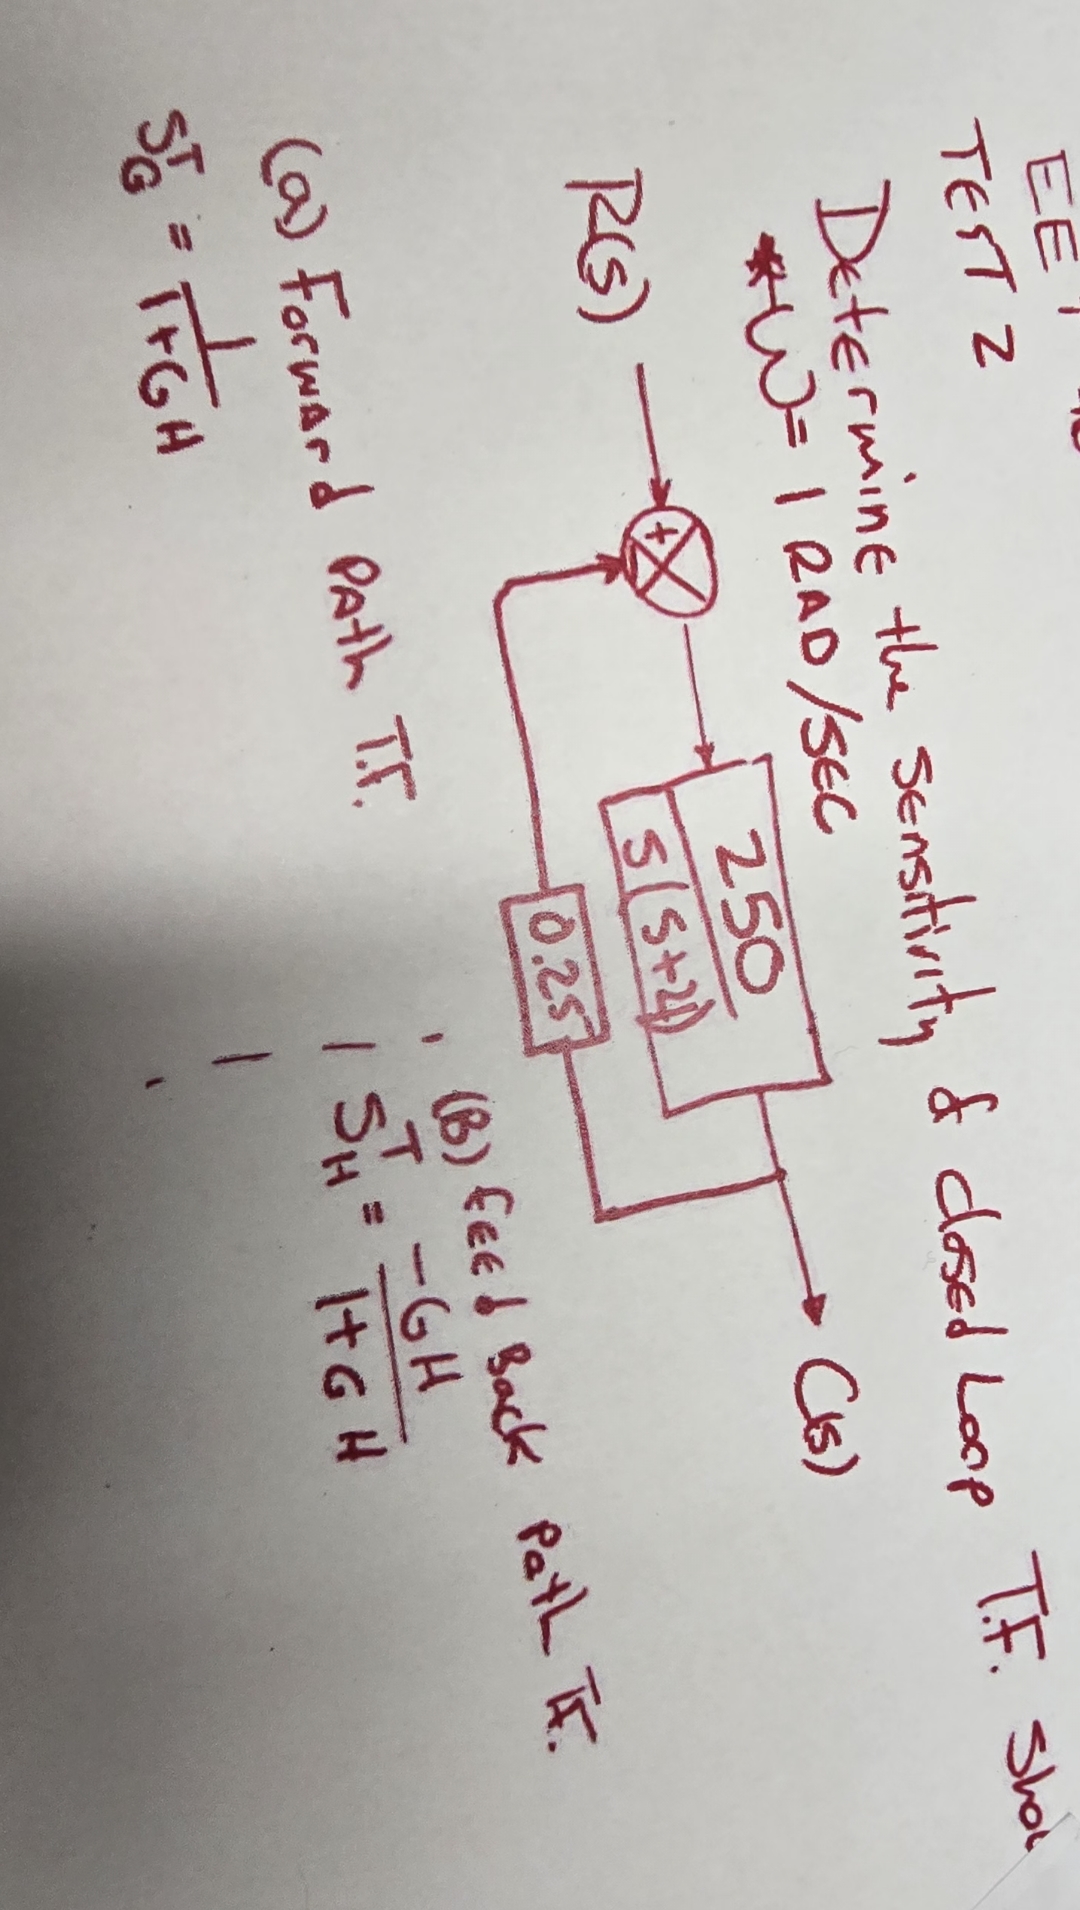 EE
TEST 2
Determine the sensitivity & closed Loop T.F.
W = 1 RAD/SEC
R(s)
+
250
S(S+4)
C(s)
0.25
(a) Forward PATH T.F.
S T G = 1 / 1+GH
(B) FEEd Back Path T.F.
S T H = -GH / 1+GH